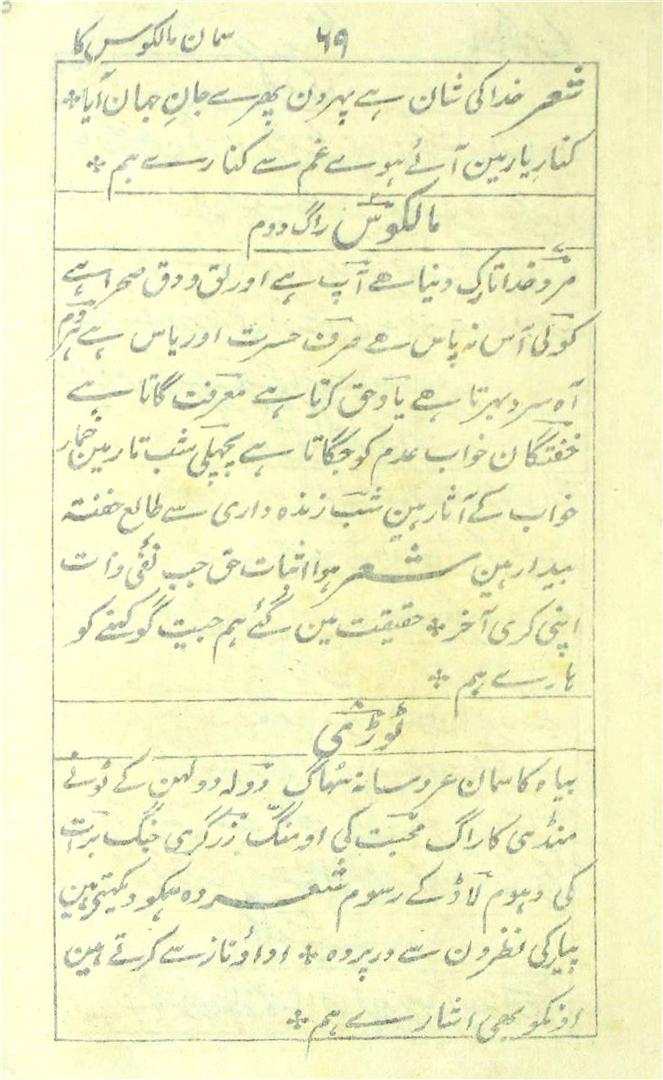 ۶۹ سمان مالکوس کا
شعر خدا کی شان ہے پہرون پھرے جانِ جہان آیا *
کنارِ یار مین آئے ہوے غم سے کنارے ہم *
مالکوس راگ دوم
مردِ خدا تارکِ دنیا ہے آپ ہے اور لق و دق صحرا ہے
کوئی آس نہ پاس ہے صرف حسرت اور یاس ہے ہردم
آہ سرد بہرتا ہے یادِ حق کرتا ہے معرفت گاتا ہے
خفتگان خواب عدم کو جگاتا ہے پچھلی شب تار مین خمار
خواب کے آثار ہین شب زندہ داری سے طالع خفتہ
بیدار ہین شعر ہوا اثبات حق جب نفی ذات
اپنی کری آخر * حقیقت مین گئے ہم جیت گو کہنے کو
ہارے ہم *
ٹوڑی
بیاہ کا سمان عروسانہ سُہاگ دولہ دولہن کے ٹونے
منڈی کا راگ محبت کی اومنگ زرگری جنگ برات
کی دہوم لاڈ کے رسوم شعر وہ ہمکو دیکہتے ہین
پیار کی نظرون سے درپردہ * ادا و ناز سے کرتے ہین
اونکو بھی اشارے ہم *